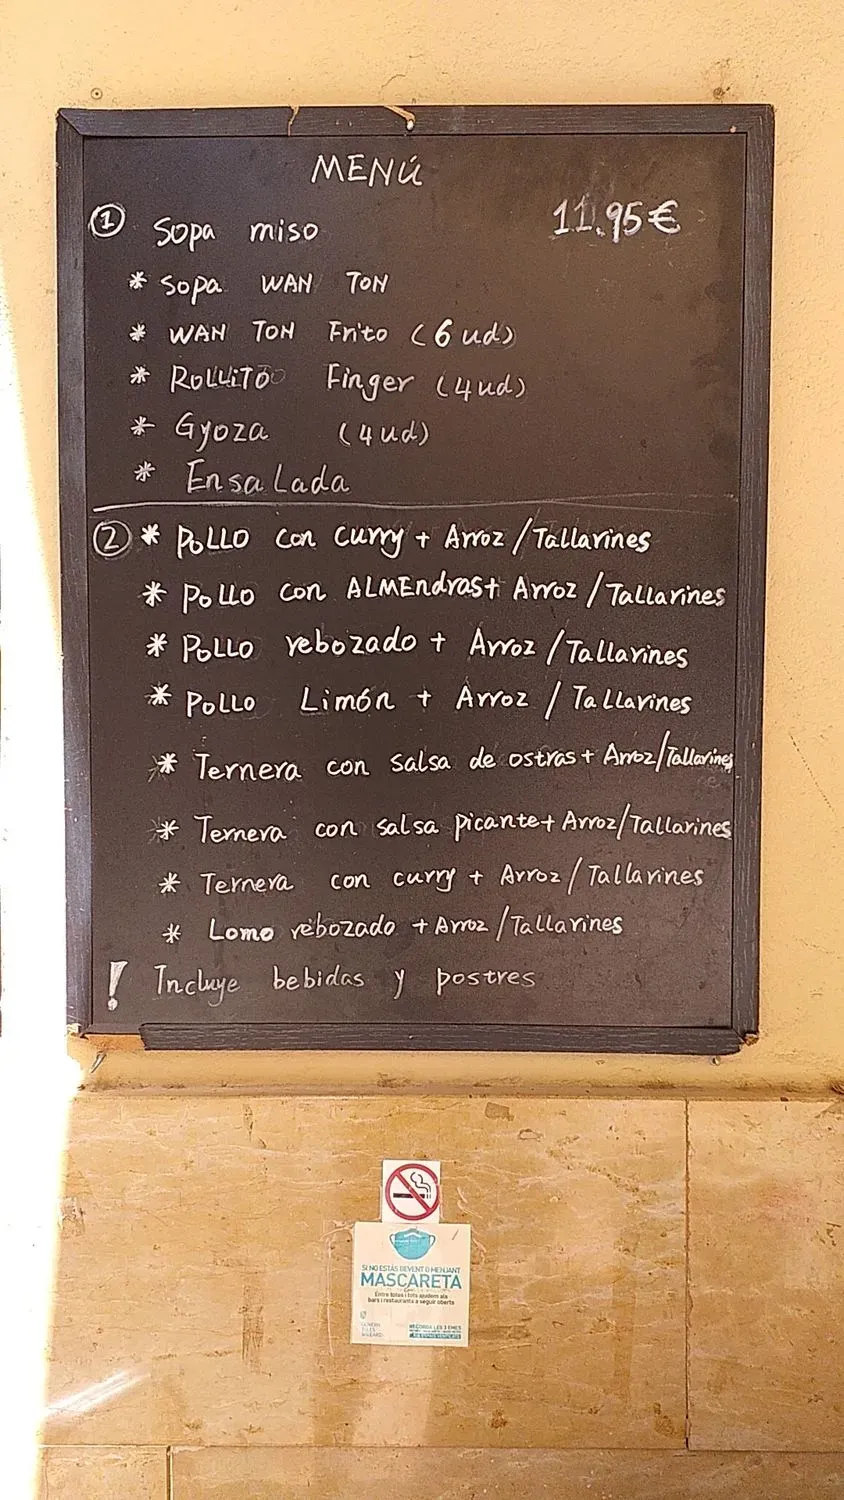 MENÚ
11.95€
① Sopa miso
* Sopa WAN TON
* WAN TON Frito (6 ud)
* ROLLITO Finger (4ud)
* Gyoza (4ud)
* Ensalada
② * POLLO con curry + Arroz/Tallarines
* POLLO con ALMEndras + Arroz/Tallarines
* POLLO rebozado + Arroz/Tallarines
* POLLO Limón + Arroz/Tallarines
* Ternera con salsa de ostras + Arroz/Tallarines
* Ternera con salsa picante + Arroz/Tallarines
* Ternera con curry + Arroz/Tallarines
* Lomo rebozado + Arroz/Tallarines
! Incluye bebidas y postres
SI NO ESTÀS BEVENT O MENJANT
MASCARETA
Entre totes i tots ajudem als
bars i restaurants a seguir oberts
RECORDA LES 3 EMES